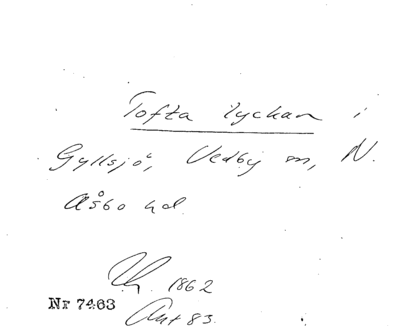 Tofta lyckan i
Gyllsjö, Vedby sn, N.
Åsbo hd.
1862
Nr 7463
83.